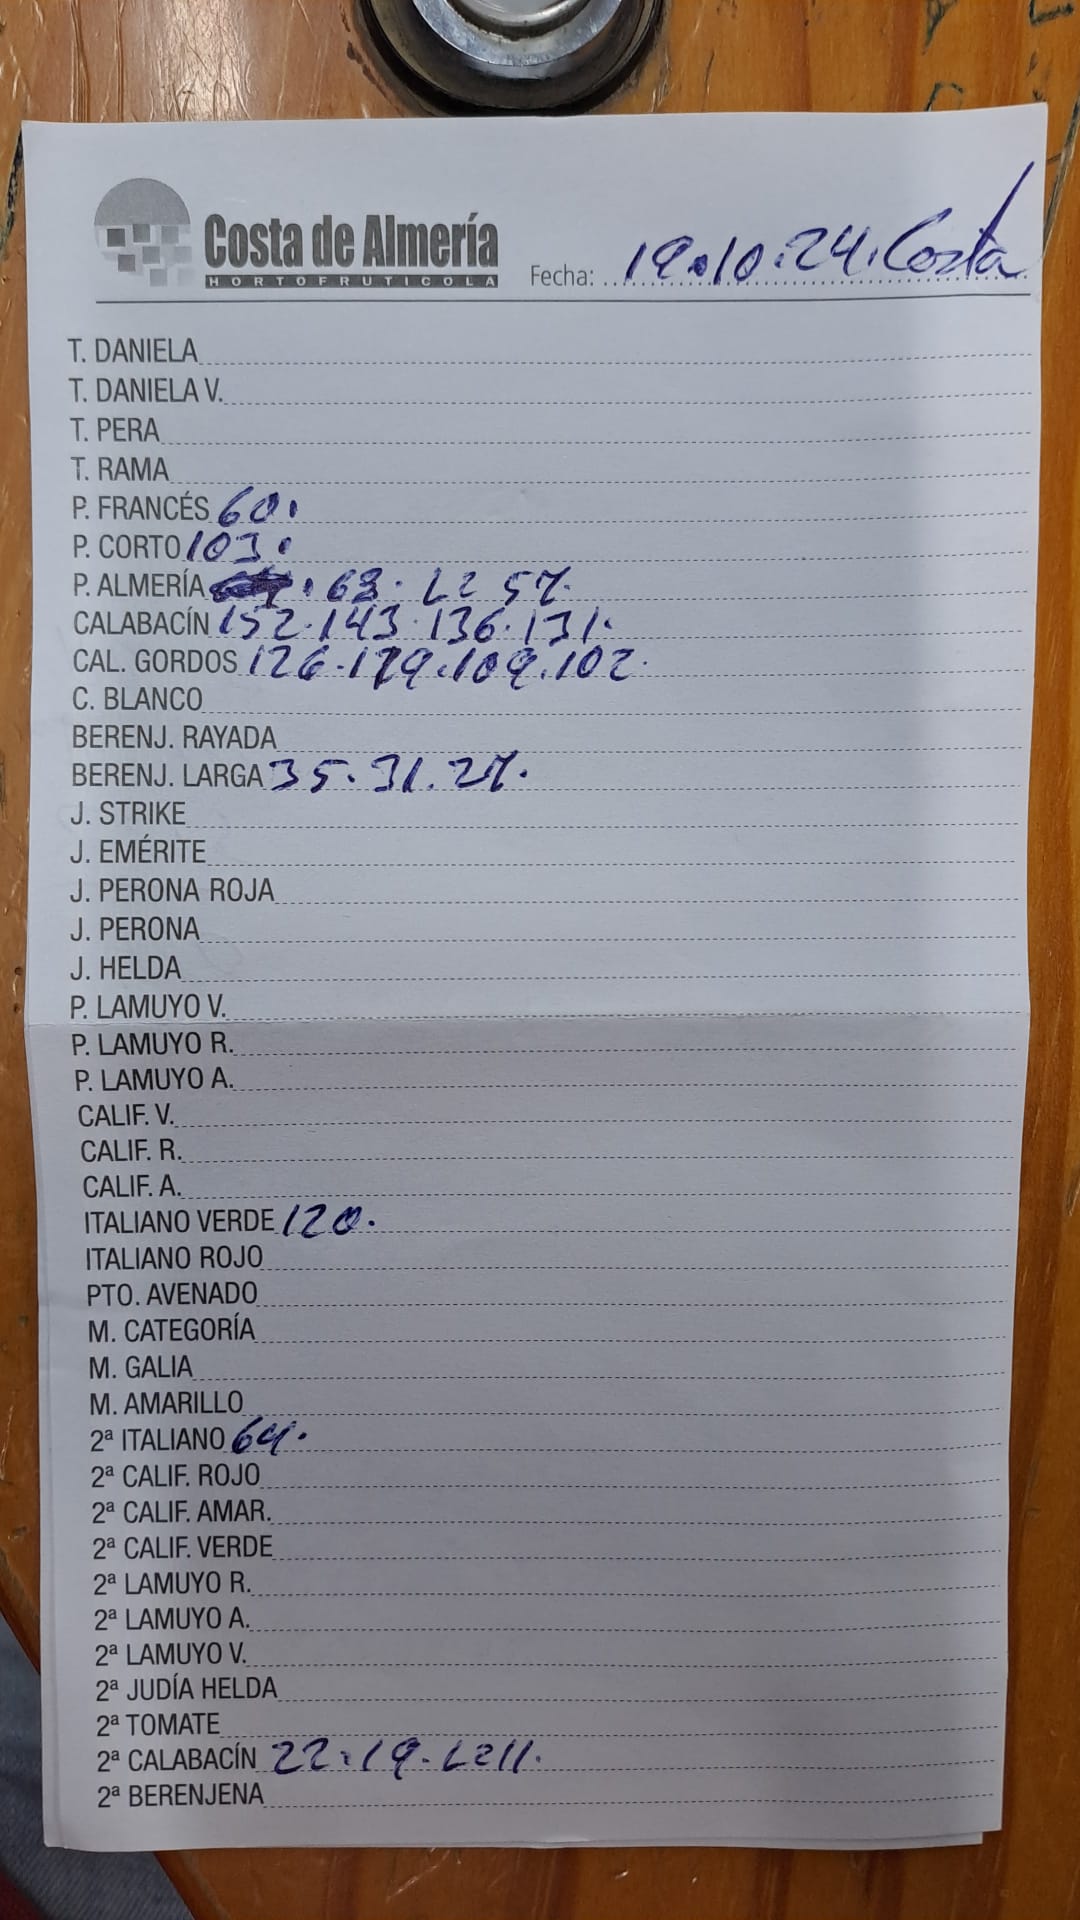 Costa de Almería
HORTOFRUTICOLA
Fecha: 19.10.24. Costa
T. DANIELA
T. DANIELA V.
T. PERA
T. RAMA
P. FRANCÉS 60.
P. CORTO 103.
P. ALMERÍA . 68. L2 57.
CALABACÍN 152.143.136.131.
CAL. GORDOS 126.119.109.102.
C. BLANCO
BERENJ. RAYADA
BERENJ. LARGA 35.31.27.
J. STRIKE
J. EMÉRITE
J. PERONA ROJA
J. PERONA
J. HELDA
P. LAMUYO V.
P. LAMUYO R.
P. LAMUYO A.
CALIF. V.
CALIF. R.
CALIF. A.
ITALIANO VERDE 120.
ITALIANO ROJO
PTO. AVENADO
M. CATEGORÍA
M. GALIA
M. AMARILLO
2ª ITALIANO 64.
2ª CALIF. ROJO
2ª CALIF. AMAR.
2ª CALIF. VERDE
2ª LAMUYO R.
2ª LAMUYO A.
2ª LAMUYO V.
2ª JUDÍA HELDA
2ª TOMATE
2ª CALABACÍN 22.19.L211.
2ª BERENJENA